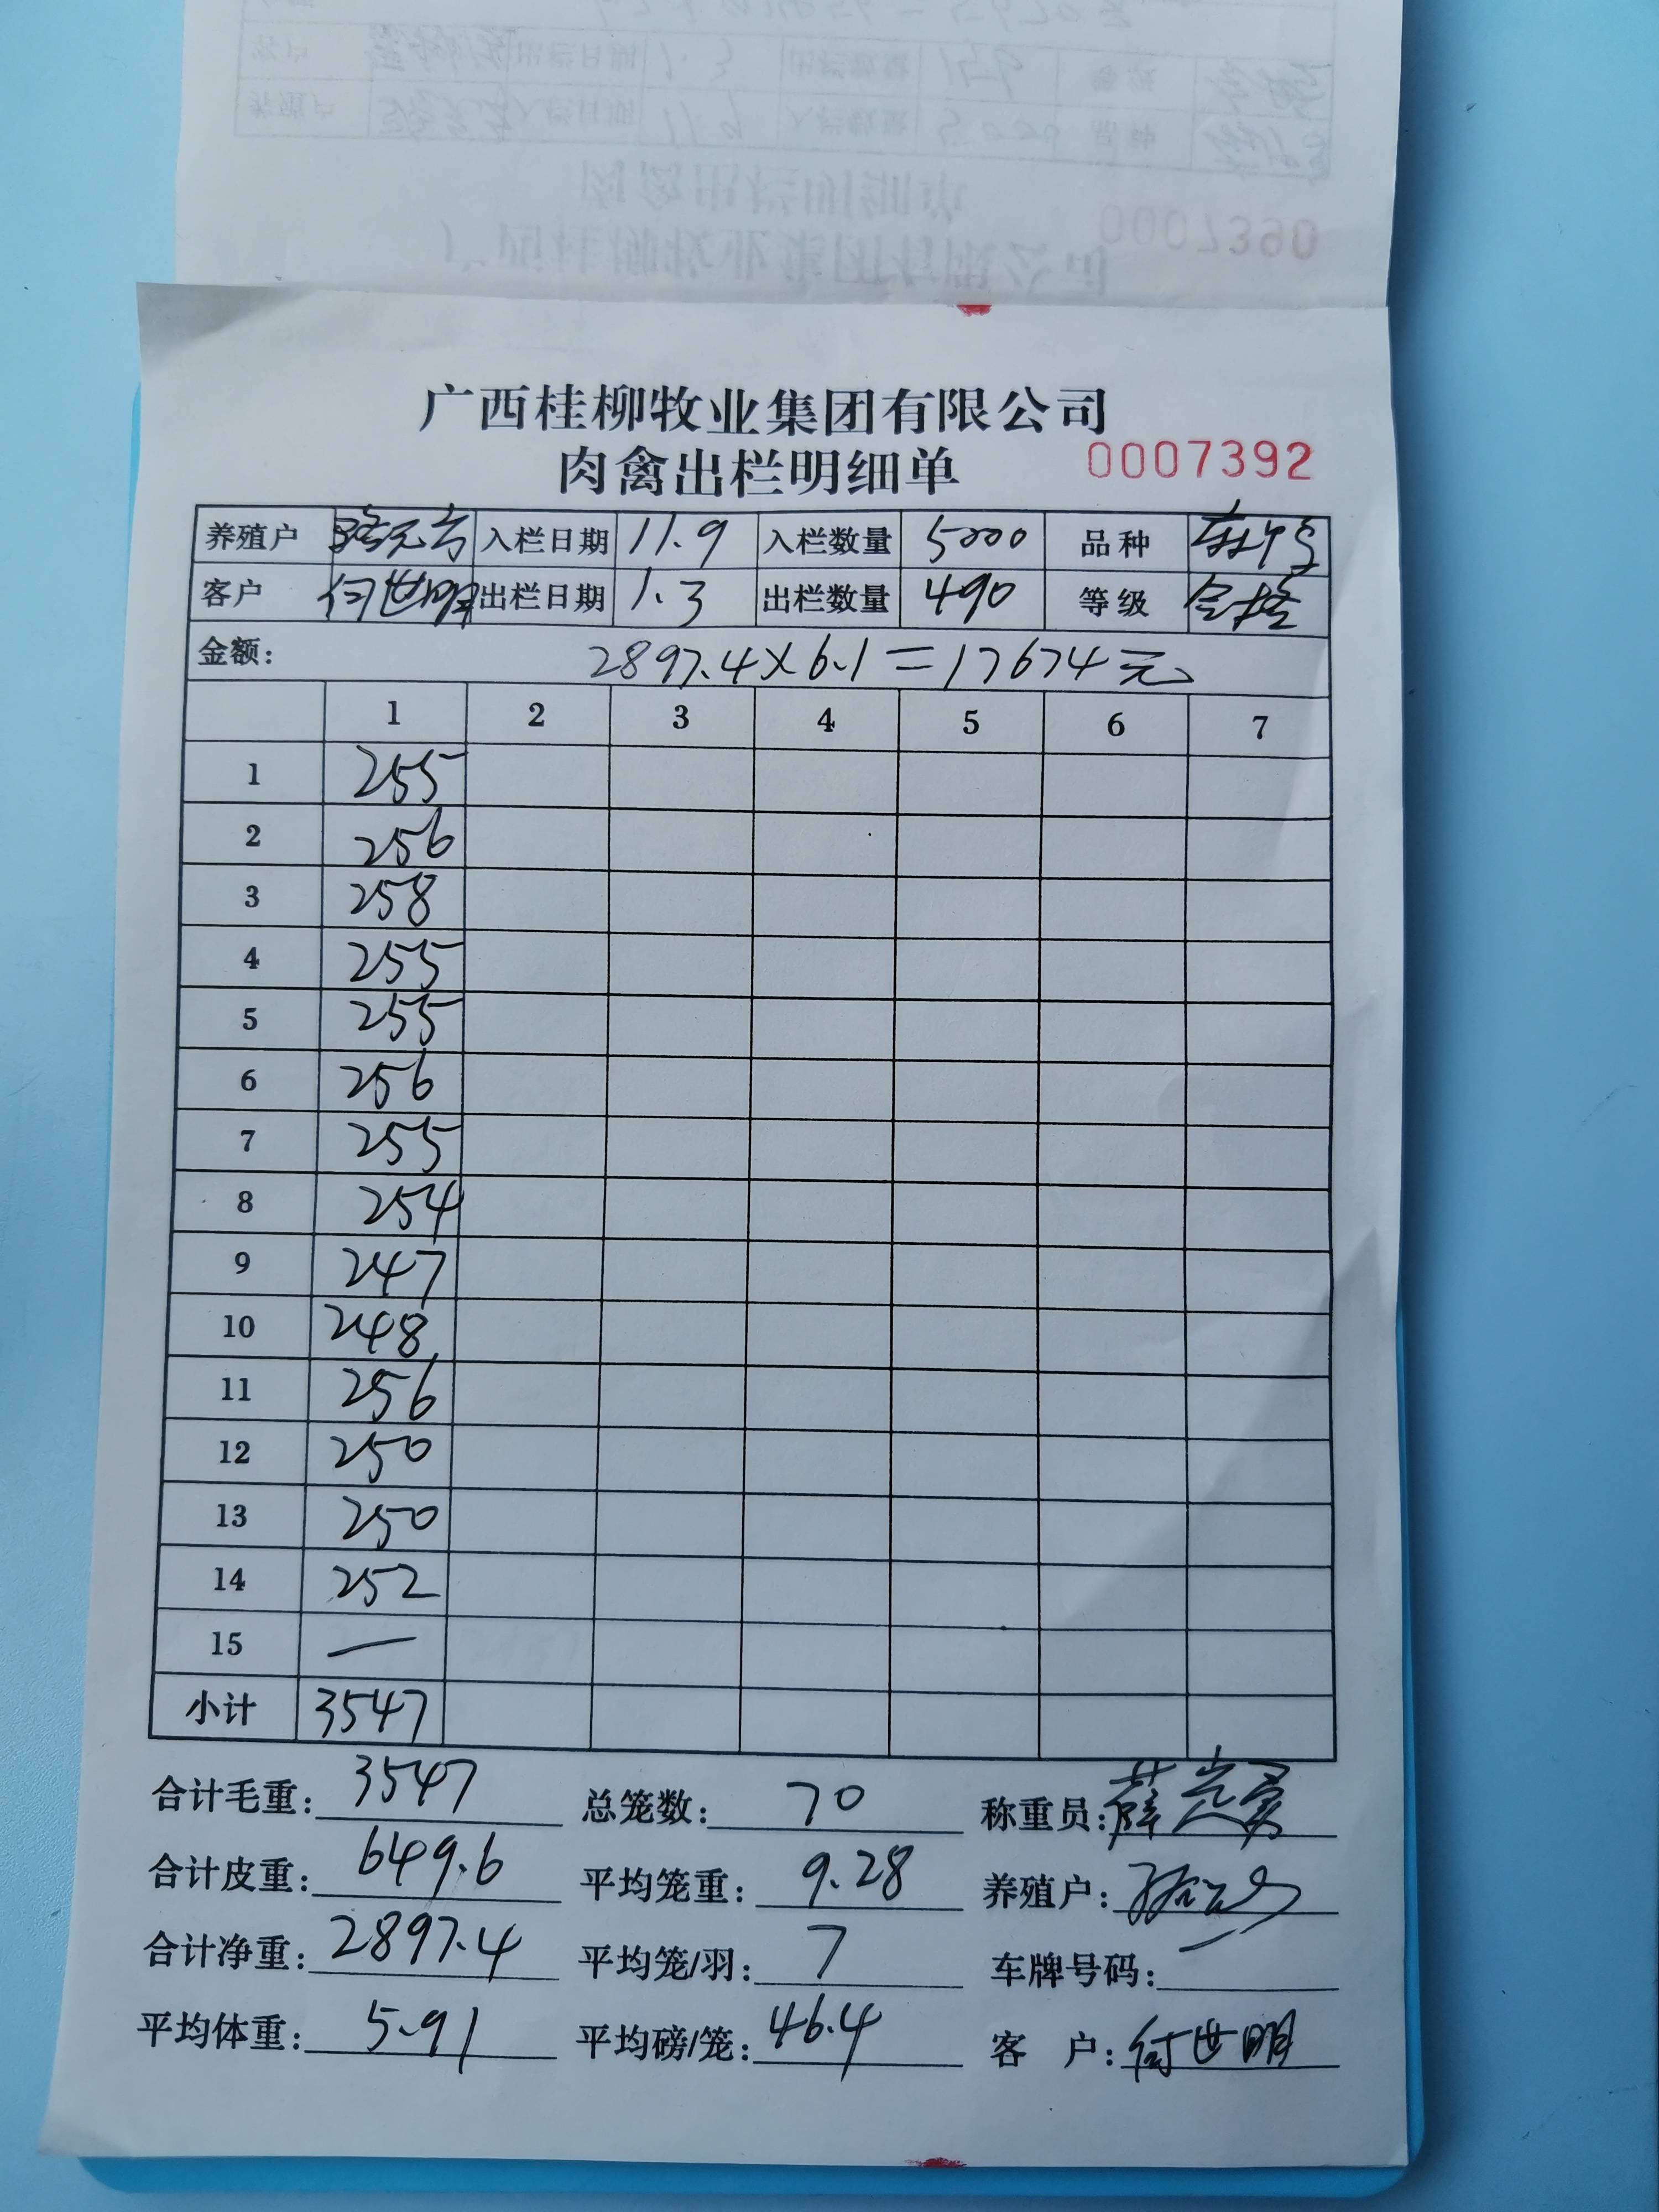 0007390
广西桂柳牧业集团有限公司
肉禽出栏明细单 0007392
养殖户 入栏日期 11.9 入栏数量 5000 品种
客户 付世明 出栏日期 1.3 出栏数量 490 等级 合格
金额: 2897.4×6.1=17674元
1 2 3 4 5 6 7
1 255
2 256
3 258
4 255
5 255
6 256
7 255
8 254
9 247
10 248
11 256
12 250
13 250
14 252
15 —
小计 3547
合计毛重: 3547 总笼数: 70 称重员:
合计皮重: 649.6 平均笼重: 9.28 养殖户:
合计净重: 2897.4 平均笼/羽: 7 车牌号码: —
平均体重: 5.91 平均磅/笼: 46.4 客 户: 付世明